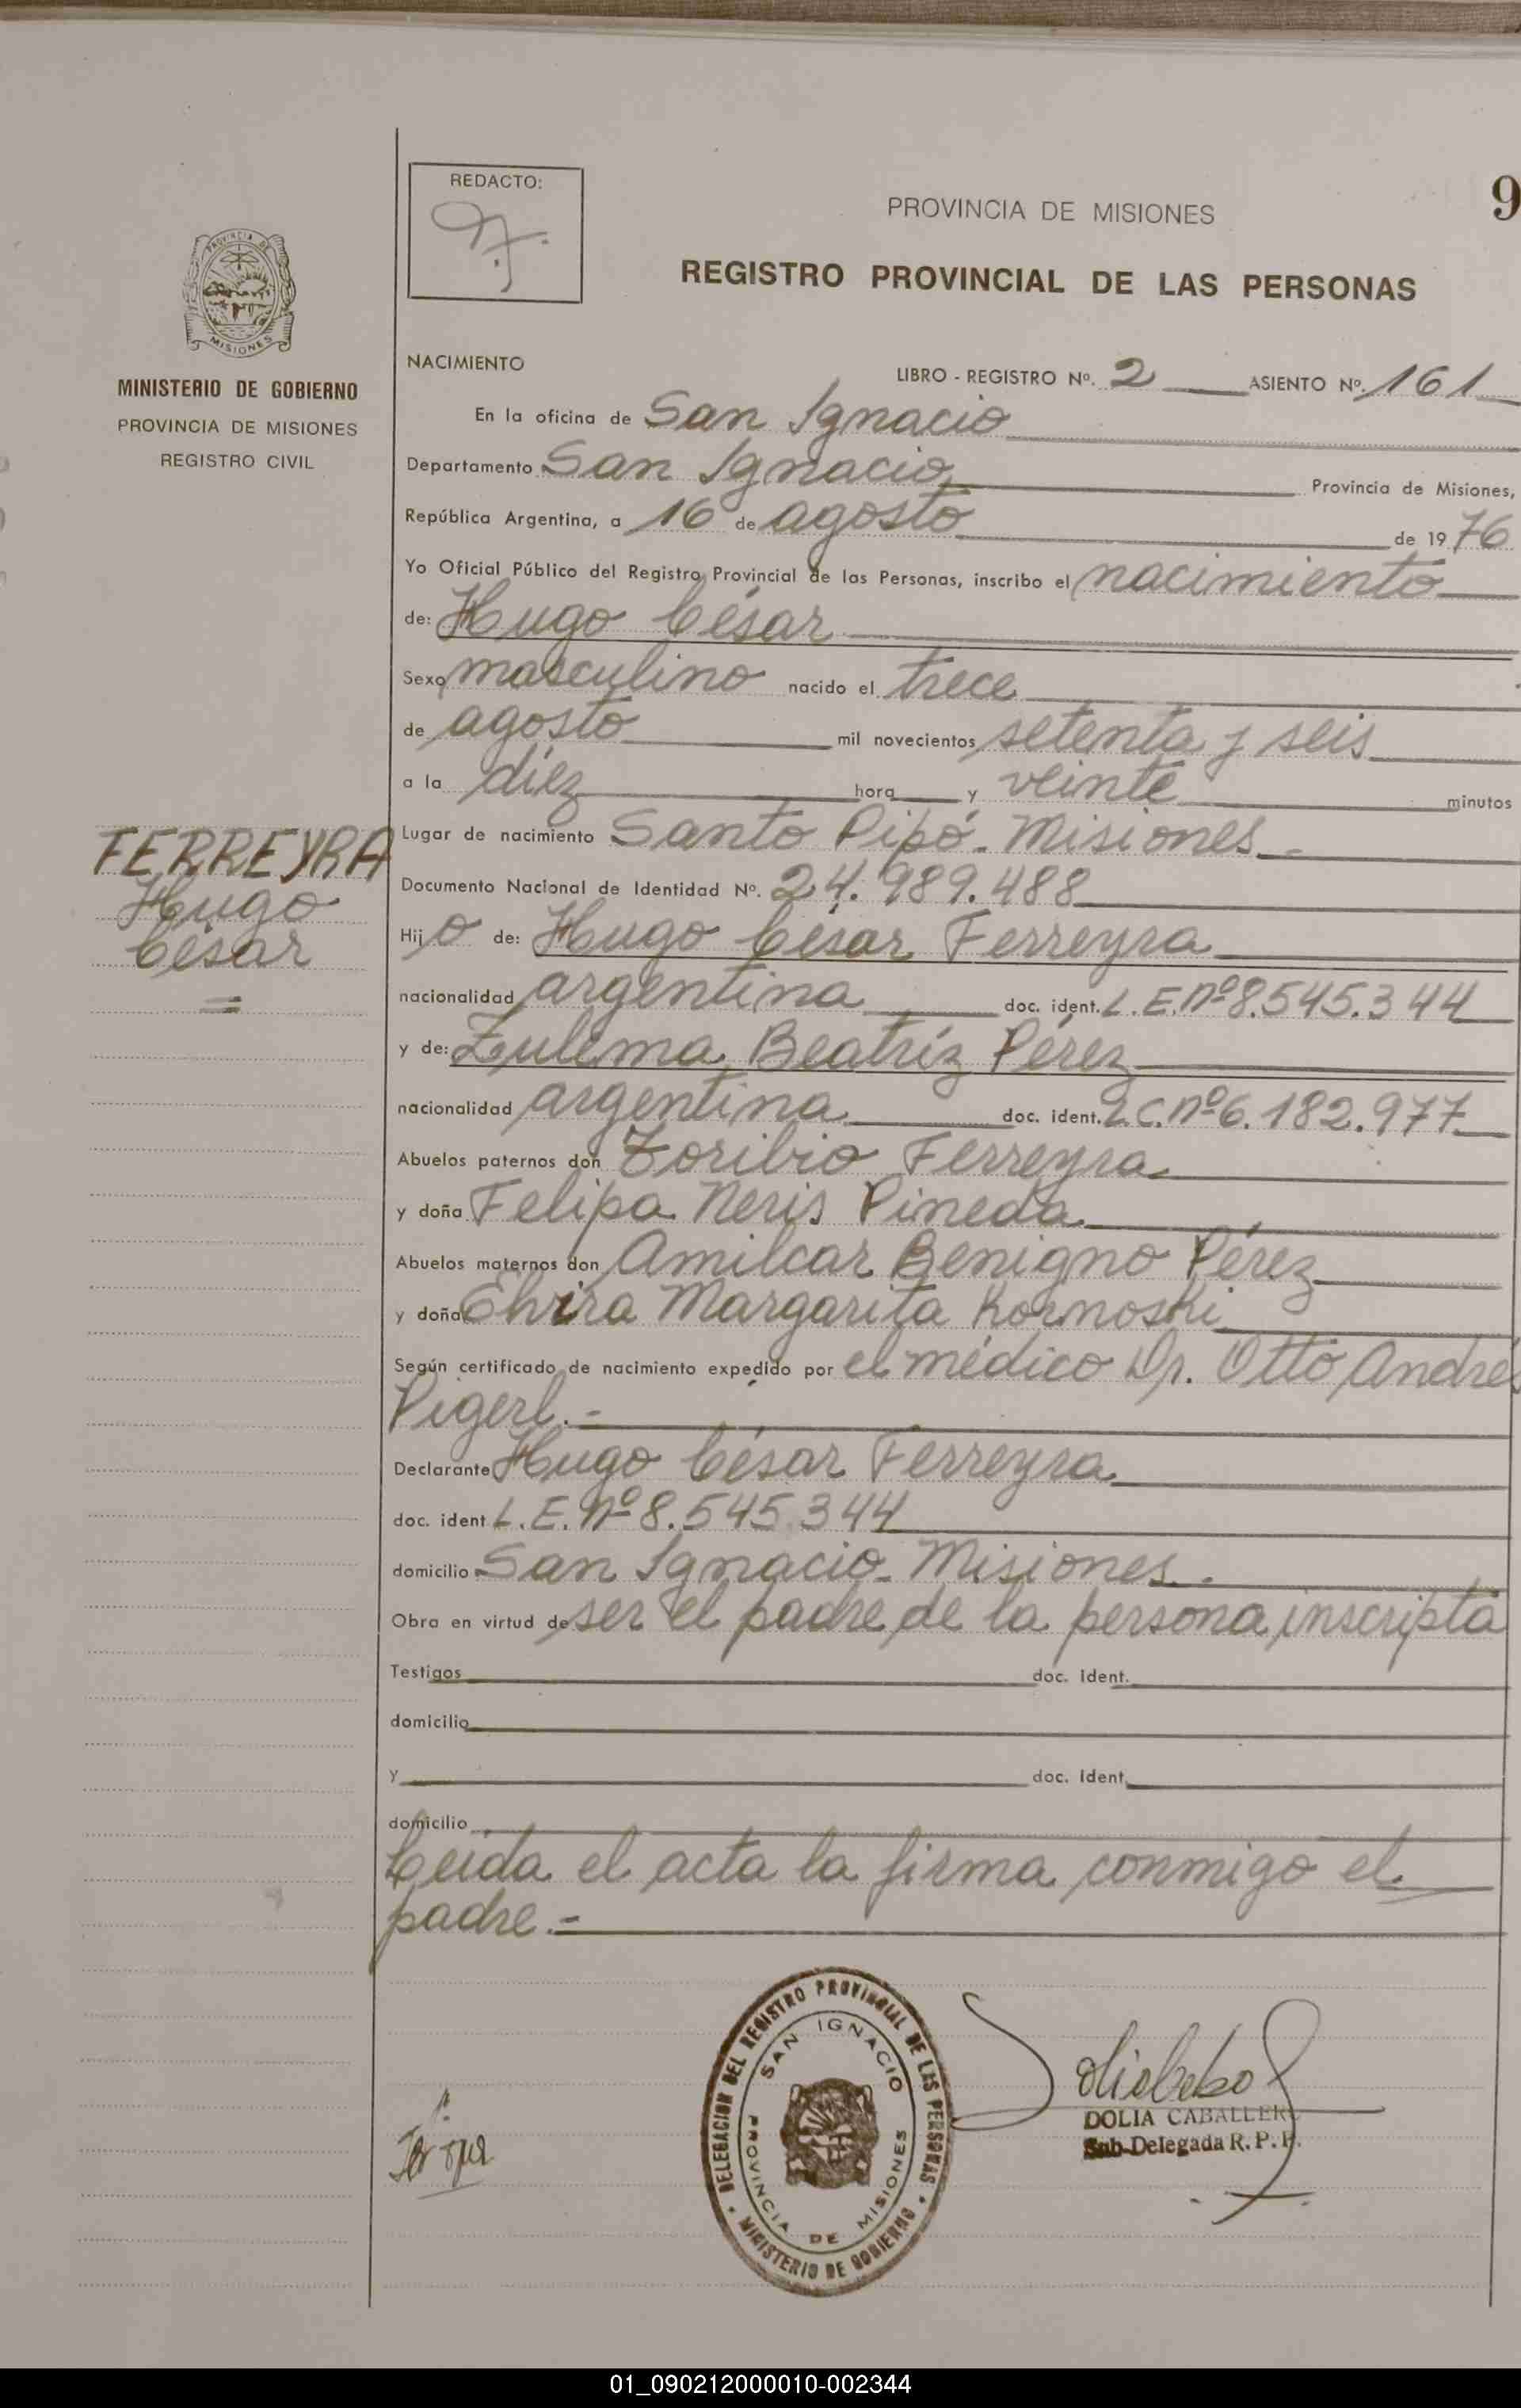 REDACTO:
PROVINCIA DE MISIONES
9
REGISTRO PROVINCIAL DE LAS PERSONAS
PROVINCIA DE
MISIONES
MINISTERIO DE GOBIERNO
PROVINCIA DE MISIONES
REGISTRO CIVIL
NACIMIENTO
LIBRO - REGISTRO Nº. 2 ASIENTO Nº. 161
En la oficina de San Ignacio
Departamento San Ignacio Provincia de Misiones,
República Argentina, a 16 de agosto de 1976
Yo Oficial Público del Registro Provincial de las Personas, inscribo el nacimiento
de: Hugo César
Sexo masculino nacido el trece
de agosto mil novecientos setenta y seis
a la diez hora y veinte minutos
Lugar de nacimiento Santo Pipó - Misiones.-
Documento Nacional de Identidad Nº. 24.989.488
FERREYRA
Hugo
César
Hijo de: Hugo César Ferreyra
nacionalidad argentina doc. ident. L.E.nº8.545.344
y de: Zulema Beatríz Pérez
nacionalidad argentina doc. ident. L.C.nº6.182.977
Abuelos paternos don Toribio Ferreyra
y doña Felipa Neris Pineda
Abuelos maternos don Amilcar Benigno Pérez
y doña Margarita Kornoski
Según certificado de nacimiento expedido por el médico Dr. Otto Andrés
Pigerl.-
Declarante Hugo César Ferreyra
doc. ident. L.E.Nº8.545.344
domicilio San Ignacio - Misiones.-
Obra en virtud de ser el padre de la persona inscripta
Testigos doc. ident.
domicilio
y doc. ident.
domicilio
Leída el acta la firma conmigo el
padre.-
DELEGACION DEL REGISTRO PROVINCIAL DE LAS PERSONAS
MINISTERIO DE GOBIERNO
SAN IGNACIO
PROVINCIA DE MISIONES
DOLIA CABALLERO
Sub-Delegada R. P. P.
01_090212000010-002344